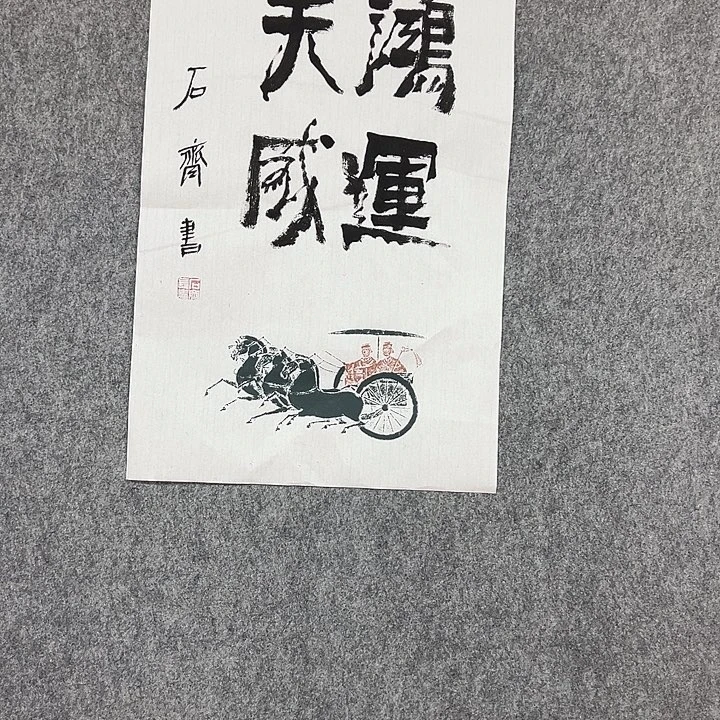 鴻運
天
石齊書